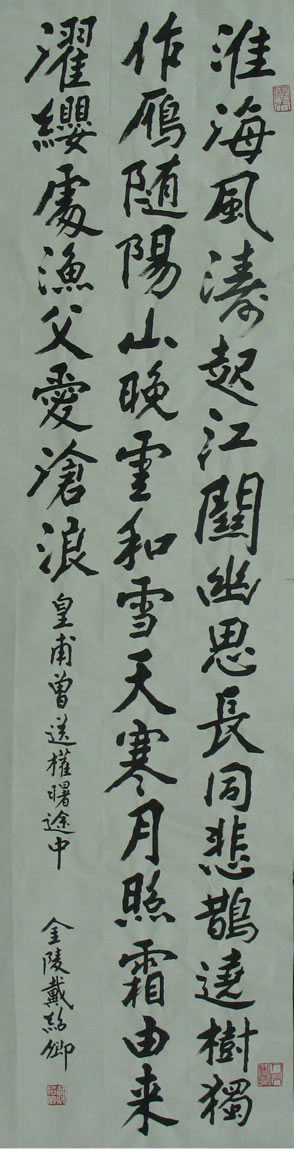 淮海風濤起江關幽思長同悲鵲遶樹獨
作鴈随陽山晚雲和雪天寒月照霜由来
濯纓處漁父愛滄浪
皇甫曾送權曙途中
金陵戴
卿